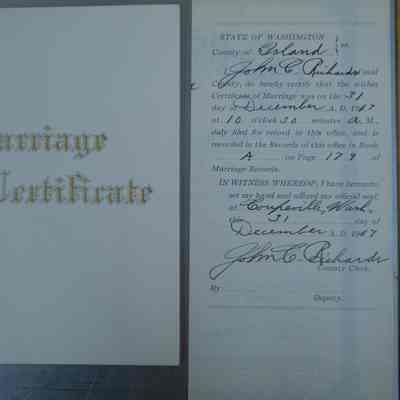 arriage
Certificate
STATE OF WASHINGTON
County of Island } ss.
I, John C. Richards said
County, do hereby certify that the within
Certificate of Marriage was on the 31
day of December A. D. 1917
at 10 o'clock 30 minutes A M.,
duly filed for record in this office, and is
recorded in the Records of this office in Book
A on Page 179 of
Marriage Records.
IN WITNESS WHEREOF, I have hereunto
set my hand and affixed my official seal
at Coupeville, Wash.
this 31 day of
December A. D. 1917
John C. Richards
County Clerk.
By
Deputy.